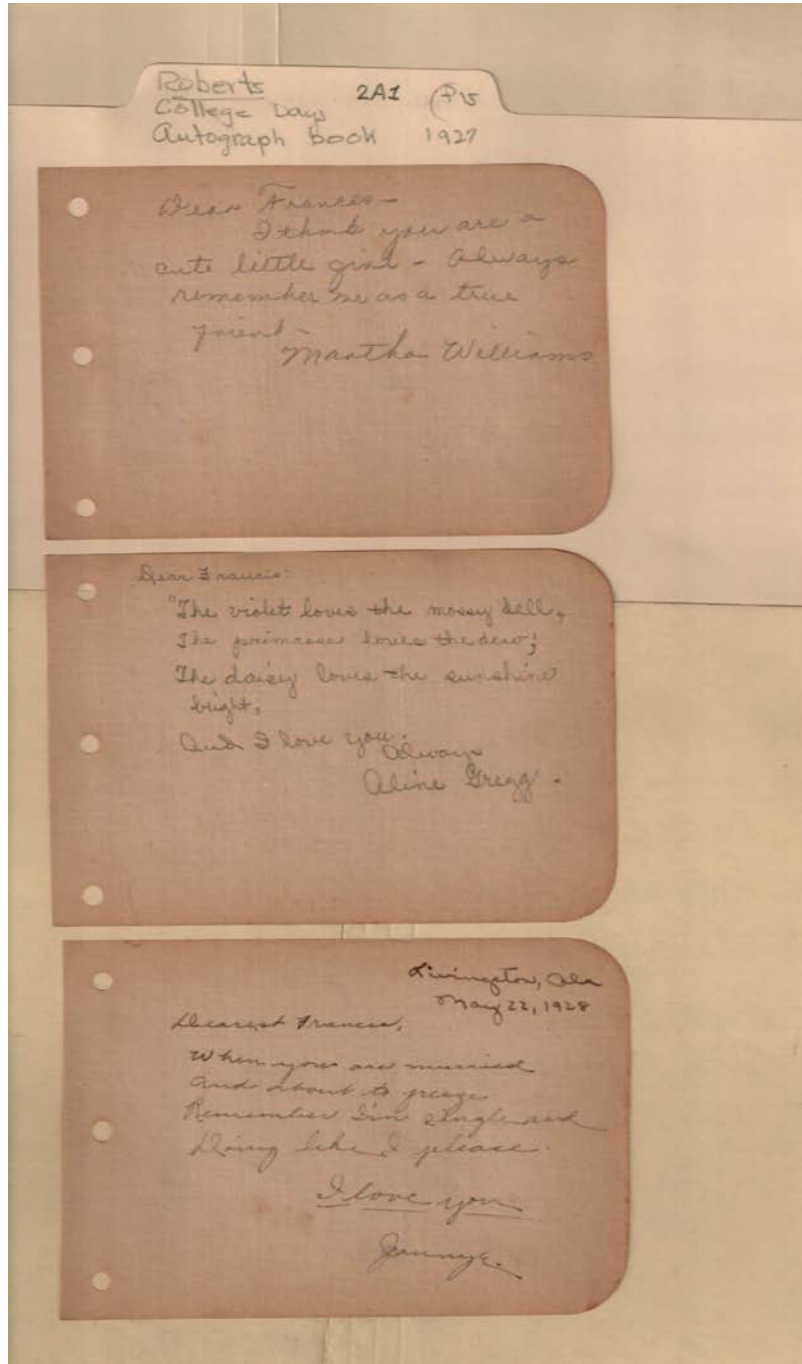 Roberts 2A1
College Days
Autograph book 1927
Dear Frances-
I think you are a
cute little girl - Always
remember me as a true
friend-
Martha Williams
Dear Francis:
"The violet loves the mossy dell,
The primrose loves the dew;
The daisy loves the sunshine
bright,
And I love you.
Always
Aline Gregg -
Livingston, Ala
May 22, 1928
Dearest Frances,
When you are married
and about to freeze
Remember I'm single and
doing like I please.
I love you
Jennye.